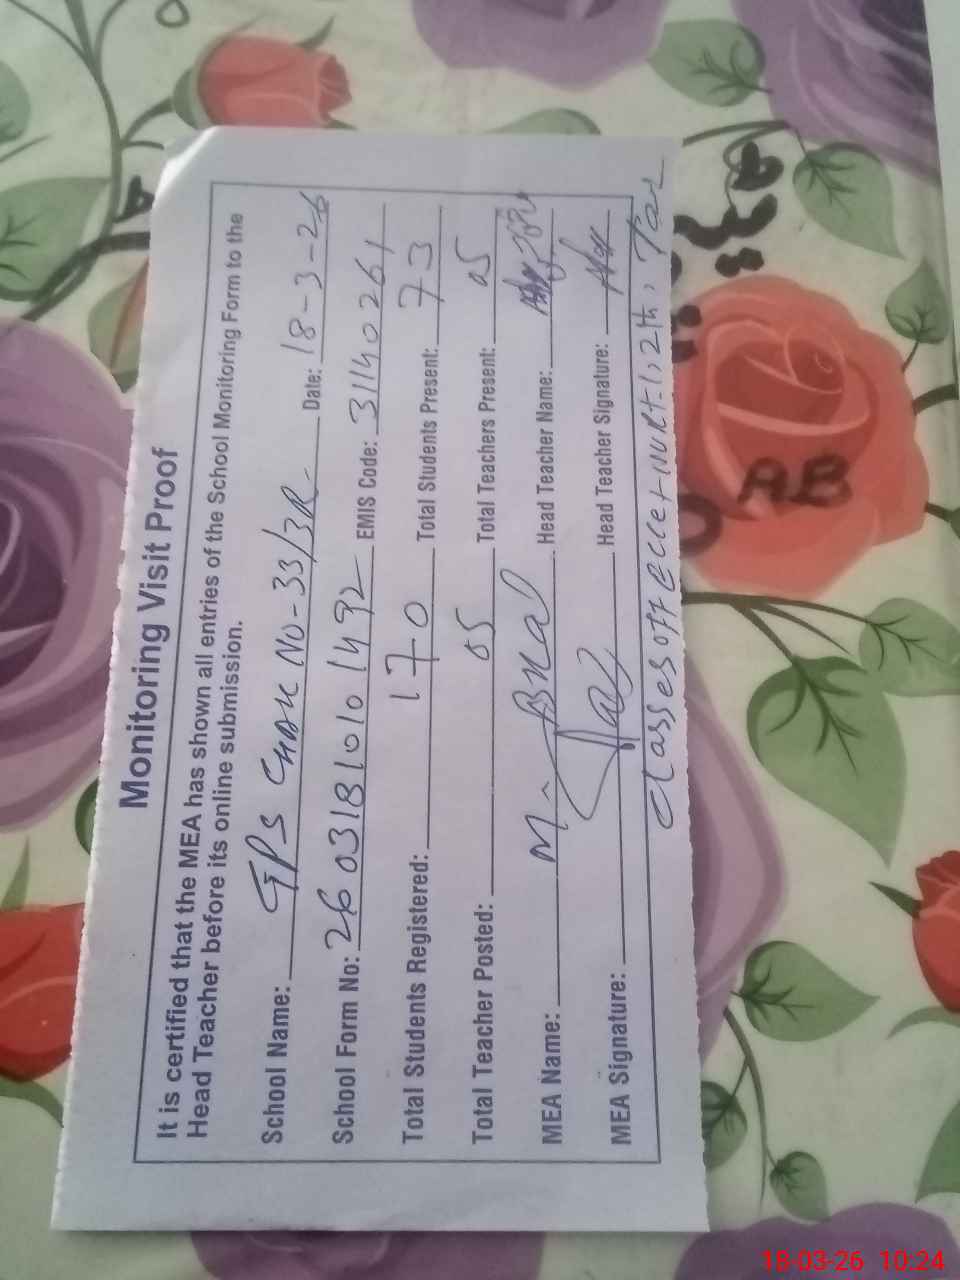 Monitoring Visit Proof
It is certified that the MEA has shown all entries of the School Monitoring Form to the
Head Teacher before its online submission.
School Name: GPS CHAK NO-33/3R Date: 18-3-26
School Form No: 2603181010 1492 EMIS Code: 31140261
Total Students Registered: 170 Total Students Present: 73
Total Teacher Posted: 05 Total Teachers Present: 05
MEA Name: M. Head Teacher Name:
MEA Signature: Head Teacher Signature:
classes off ecce+nur+1, 2th,
AB
18-03-26 10:24